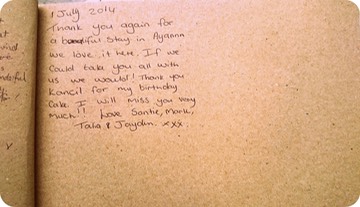 1 July 2014
Thank you again for
a beautiful stay in Ayanna
we love it here. If we
could take you all with
us we would! Thank you
Kancil for my birthday
cake I will miss you very
much!! Love Santie, Mark,
Talia & Jaydin. xxx